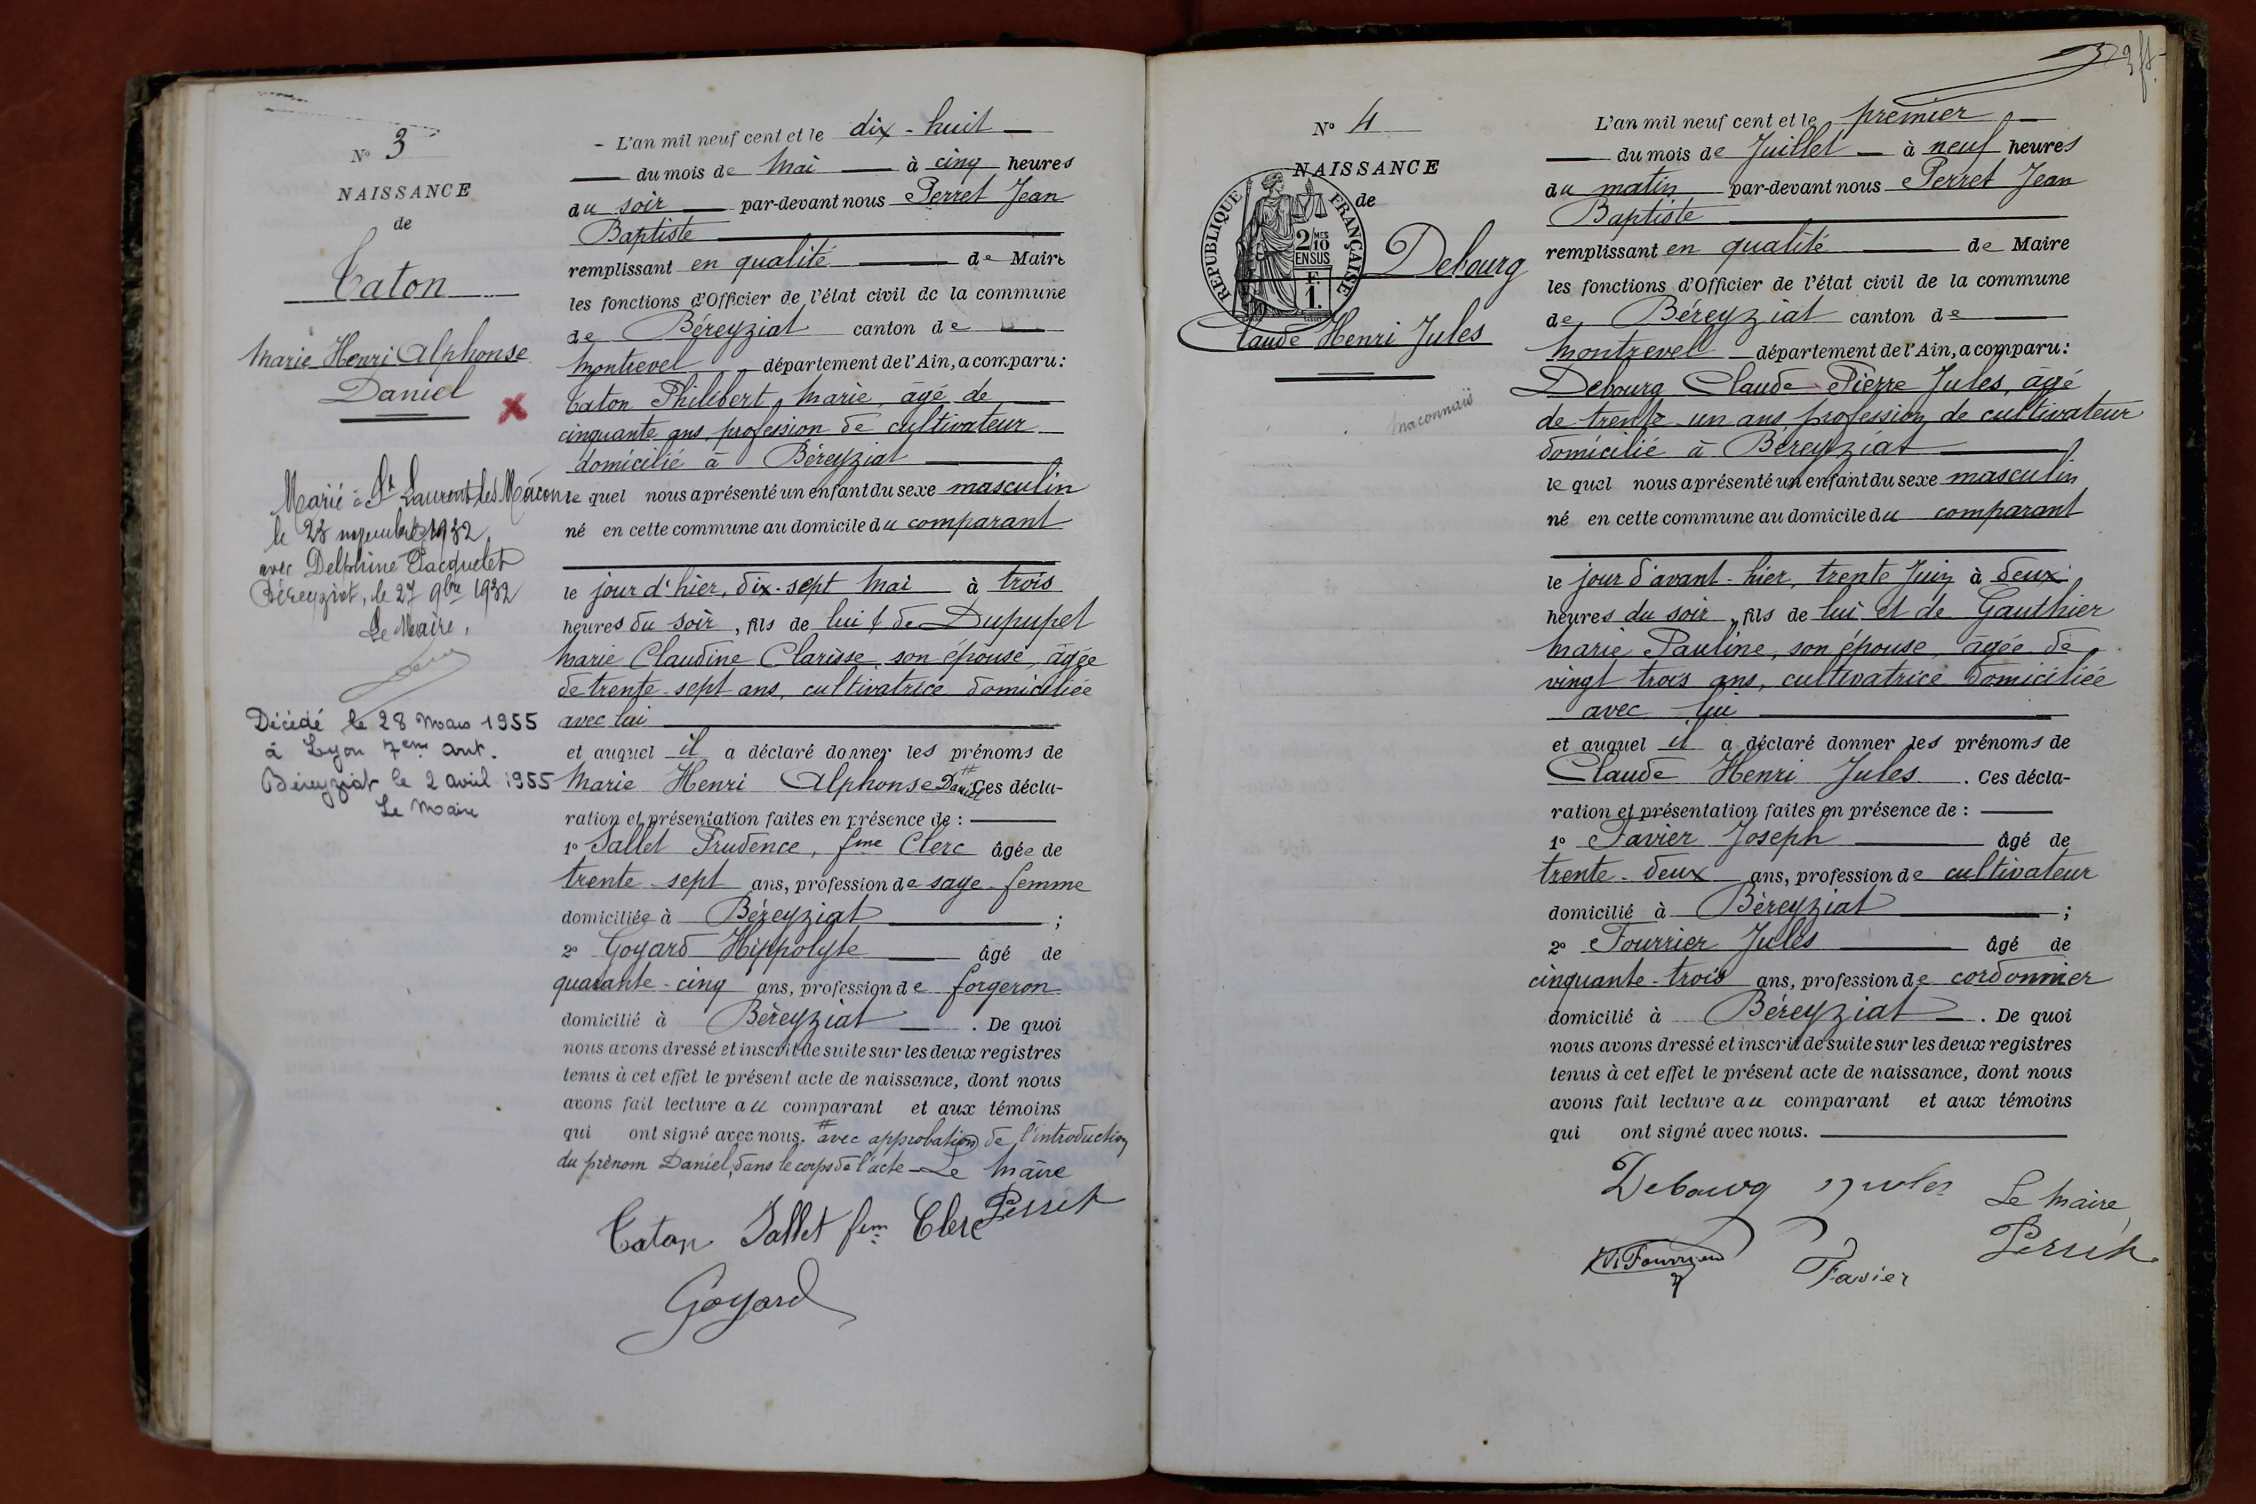 N° 3
NAISSANCE
de
Caton
Marie Henri Alphonse
Daniel
Marié à St Laurent les Mâcon
le 23 novembre 1932
avec Delphine Pacquelet
Béreyziat, le 27 9bre 1932
Le Maire,
Décédé le 28 Mars 1955
à Lyon 7eme arrt.
Béreyziat le 2 avril 1955
Le Maire
- L'an mil neuf cent et le dix-huit
du mois de Mai à cinq heures
du soir par-devant nous Perret Jean
Baptiste
remplissant en qualité de Maire
les fonctions d'Officier de l'état civil de la commune
de Béreyziat canton de
Montrevel département de l'Ain, a comparu :
Caton Philibert Marie, âgé de
cinquante ans, profession de cultivateur
domicilié à Béreyziat
le quel nous a présenté un enfant du sexe masculin
né en cette commune au domicile du comparant
le jour d'hier, dix-sept Mai à trois
heures du soir, fils de lui & de Dupupet
Marie Claudine Clarisse, son épouse, âgée
de trente-sept ans, cultivatrice domiciliée
avec lui
et auquel il a déclaré donner les prénoms de
Marie Henri Alphonse Daniel # Ces décla-
ration et présentation faites en présence de :
1° Sallet Prudence, fme Clerc âgée de
trente-sept ans, profession de sage-femme
domiciliée à Béreyziat ;
2° Goyard Hippolyte âgé de
quarante-cinq ans, profession de forgeron
domicilié à Béreyziat . De quoi
nous avons dressé et inscrit de suite sur les deux registres
tenus à cet effet le présent acte de naissance, dont nous
avons fait lecture au comparant et aux témoins
qui ont signé avec nous. # avec approbation de l'introduction
du prénom Daniel, dans le corps de l'acte - Le Maire
Caton Sallet fem Clerc Perret
Goyard
N° 4
NAISSANCE
de
REPUBLIQUE FRANÇAISE
2/10 MES
EN SUS
F.
1.
Debourg
Claude Henri Jules
maconnais
L'an mil neuf cent et le premier
du mois de Juillet à neuf heures
du matin par-devant nous Perret Jean
Baptiste
remplissant en qualité de Maire
les fonctions d'Officier de l'état civil de la commune
de Béreyziat canton de
Montrevel département de l'Ain, a comparu :
Debourg Claude Pierre Jules, âgé
de trente-un ans, profession de cultivateur
domicilié à Béreyziat
le quel nous a présenté un enfant du sexe masculin
né en cette commune au domicile du comparant
le jour d'avant-hier, trente Juin à deux
heures du soir, fils de lui et de Gauthier
Marie Pauline, son épouse, âgée de
vingt trois ans, cultivatrice domiciliée
avec lui
et auquel il a déclaré donner les prénoms de
Claude Henri Jules . Ces décla-
ration et présentation faites en présence de :
1° Favier Joseph âgé de
trente-deux ans, profession de cultivateur
domicilié à Béreyziat ;
2° Fourrier Jules âgé de
cinquante-trois ans, profession de cordonnier
domicilié à Béreyziat . De quoi
nous avons dressé et inscrit de suite sur les deux registres
tenus à cet effet le présent acte de naissance, dont nous
avons fait lecture au comparant et aux témoins
qui ont signé avec nous.
Debourg Jules Le Maire,
Fourrier Favier Perret